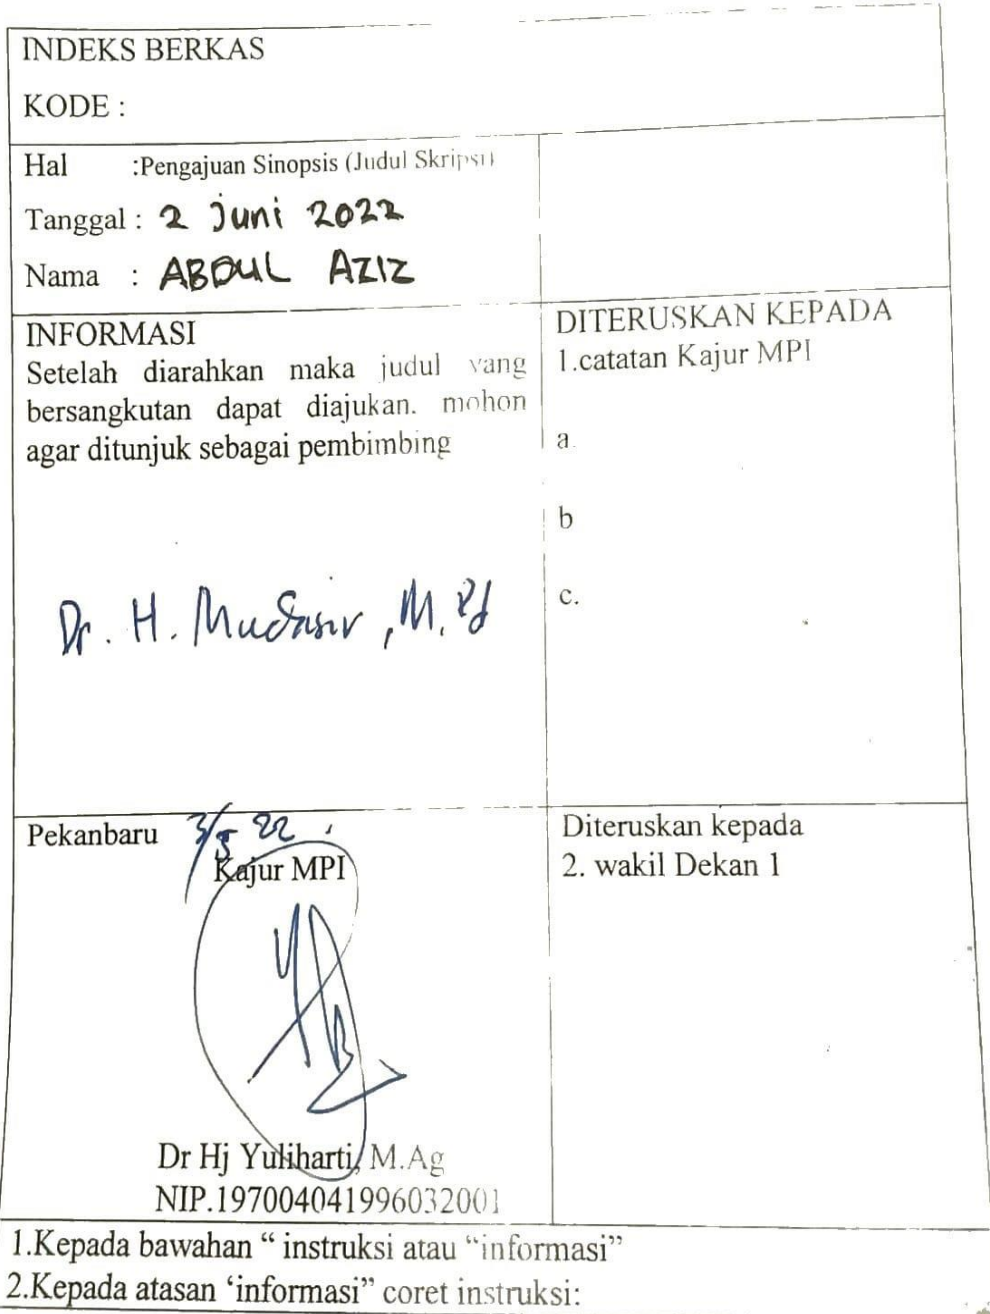 INDEKS BERKAS
KODE :
Hal :Pengajuan Sinopsis (Judul Skripsi)
Tanggal : 2 Juni 2022
Nama : ABDUL AZIZ
INFORMASI
Setelah diarahkan maka judul yang
bersangkutan dapat diajukan. mohon
agar ditunjuk sebagai pembimbing
Dr. H. Mudasir, M.Pd
DITERUSKAN KEPADA
1.catatan Kajur MPI
a.
b
c.
Pekanbaru 3/5 22
Kajur MPI
Dr Hj Yuliharti, M.Ag
NIP.197004041996032001
Diteruskan kepada
2. wakil Dekan 1
1.Kepada bawahan “ instruksi atau “informasi”
2.Kepada atasan ‘informasi” coret instruksi: